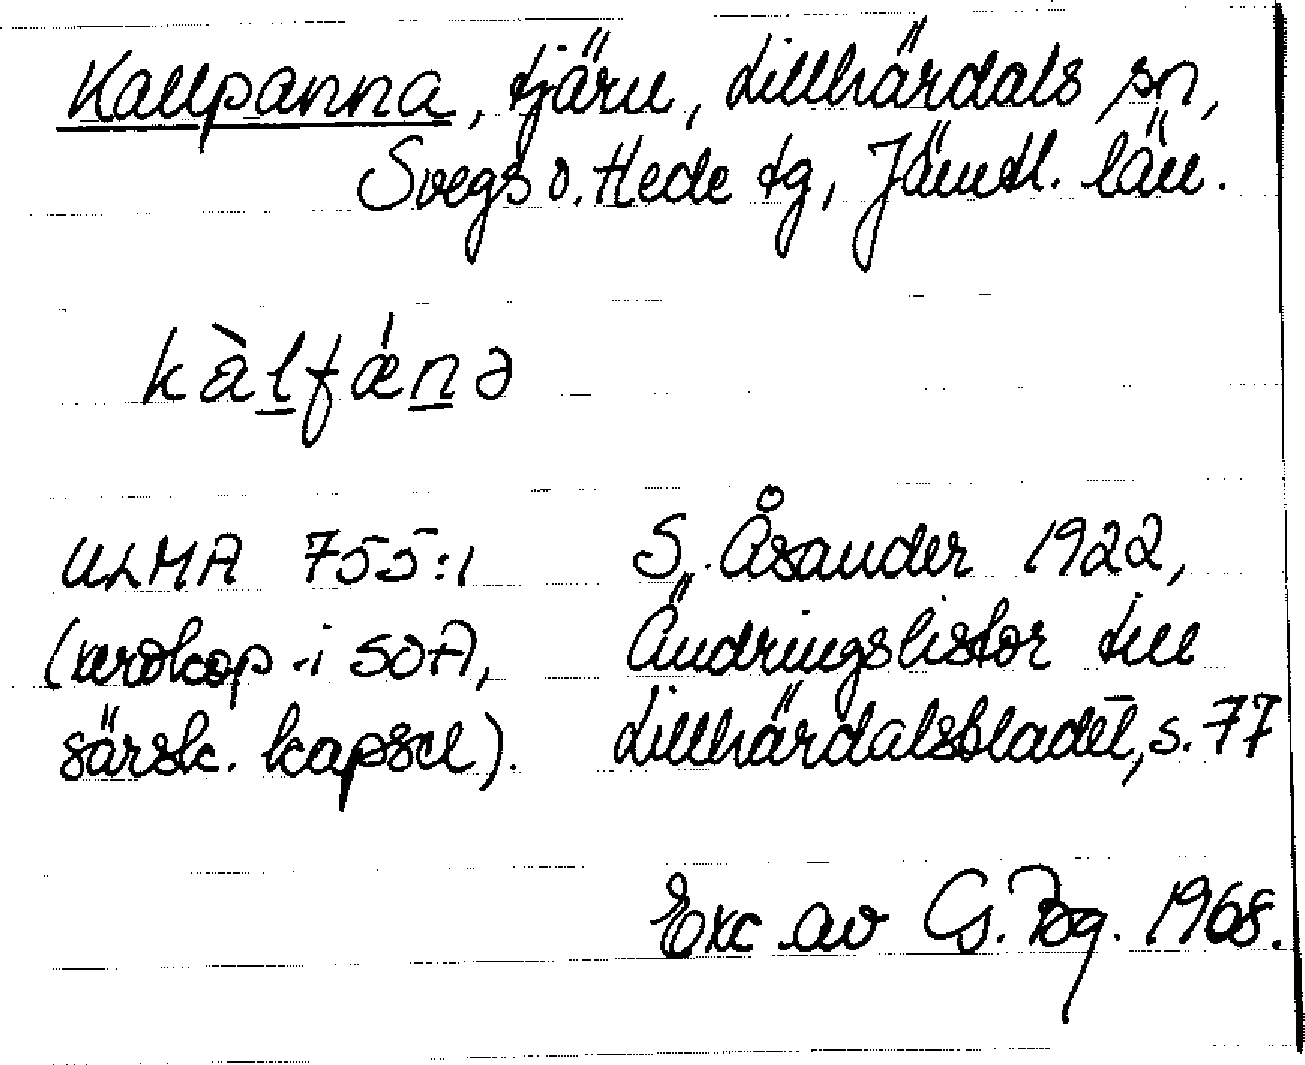 Kallpanna, tjärn, Lillhärdals sn,
Svegs o. Hede tg, Jämtl. län.
kàl̲fǽn̲ə
ULMA 755:1
(xerokop i SOA,
särsk. kapsel).
S. Åsander 1922,
Ändringslistor till
Lillhärdalsbladet, s. 77
Exc av G. Bg. 1968.